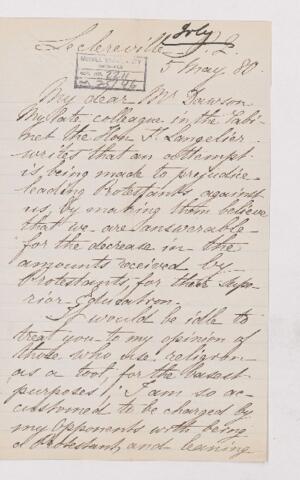 Joly
Leclereville P.Q.
5 May. 80.
My dear Mr Dawson
My late colleague in the Cabi-
net the Hon F. Langelier
writes that an attempt
is being made to prejudice
leading Protestants against
us, by making them believe
that we are answerable
for the decrease in the
amounts received by
Protestants, for their Supe-
rior Education.
It would be idle to
treat you to my opinion of
those who use religion
as a tool, for the basest
purposes; I am so ac-
customed to be charged by
my opponents with being
a Protestant, and leaning